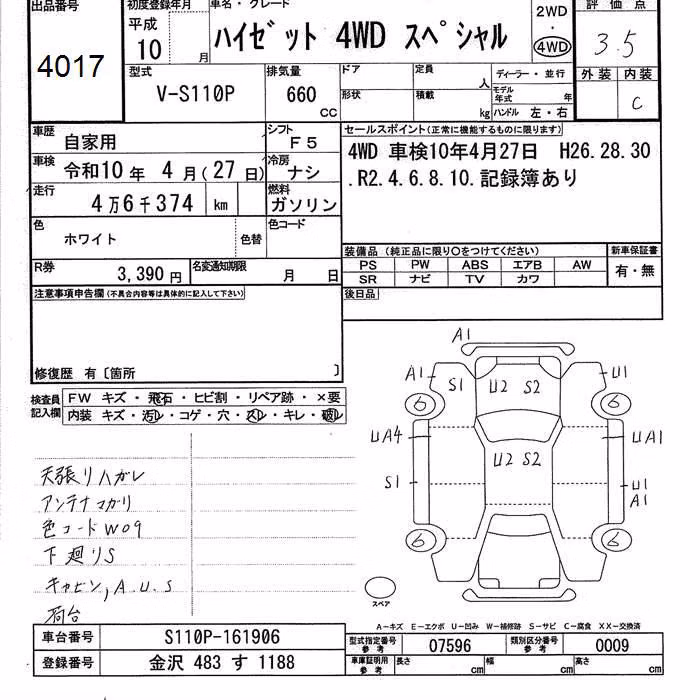 出品番号
4017
初度登録年月
平成
10 月
車名・グレード
ハイゼット 4WD スペシャル
2WD
・
4WD
評価点
3.5
外装 内装
C
型式
V-S110P
排気量
660
CC
ドア
定員
人
形状
積載
kg
ディーラー・並行
モデル年式
年
ハンドル 左・右
車歴
自家用
シフト
F5
車検
令和10 年 4 月(27 日)
冷房
ナシ
走行
4万6千374 km
燃料
ガソリン
色
ホワイト
色替
色コード
R券
3,390 円
名変通知期限
月 日
セールスポイント(正常に機能するものに限ります)
4WD 車検10年4月27日 H26.28.30
.R2.4.6.8.10.記録簿あり
装備品 (純正品に限り○をつけてください)
新車保証書
PS PW ABS エアB AW
SR ナビ TV カワ
有・無
後日品
注意事項申告欄(不具合内容等は具体的に記入して下さい)
修復歴 有〔箇所 〕
検査員
記入欄
FW キズ・飛石・ヒビ割・リペア跡・×要
内装 キズ・汚レ・コゲ・穴・スレ・キレ・破レ
天張リハガレ
アンテナマガリ
色コードW09
下廻りS
キャビン,A.U.S
荷台
A1
A1
S1
U2 S2
U1
6
6
UA4
UA1
U2 S2
S1
U1
A1
6
6
スペア
A-キズ E-エクボ U-凹み W-補修跡 S-サビ C-腐食 XX-交換済
車台番号
S110P-161906
登録番号
金沢 483 す 1188
型式指定番号
参考
07596
類別区分番号
参考
0009
車庫証明用
参考
長さ
cm
幅
cm
高さ
cm